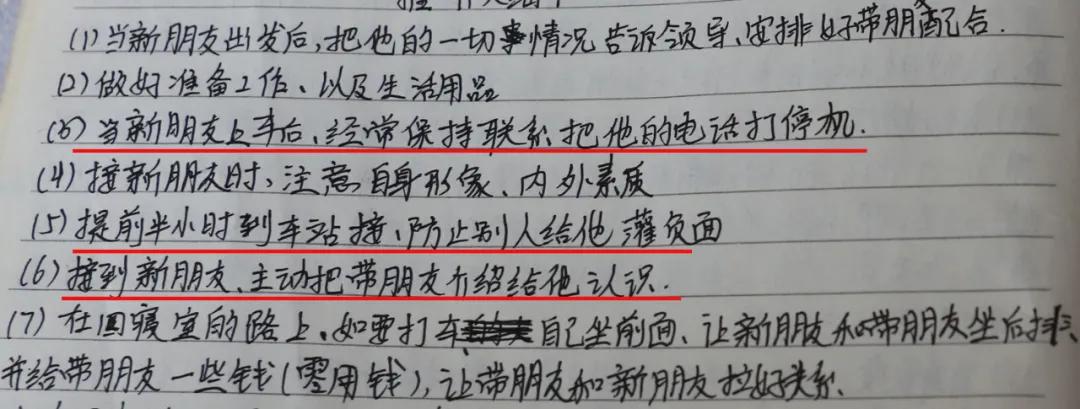 (1)当新朋友出发后,把他的一切事情况告诉领导、安排好带朋配合.
(2)做好准备工作、以及生活用品
(3)当新朋友上车后、经常保持联系、把他的电话打停机.
(4)接新朋友时、注意自身形像、内外素质
(5)提前半小时到车站接、防止别人给他灌负面
(6)接到新朋友、主动把带朋友介绍给他认识.
(7)在回寝室的路上、如要打车 自己坐前面、让新朋友和带朋友坐后排、
并给带朋友一些钱(零用钱),让带朋友和新朋友拉好关系.